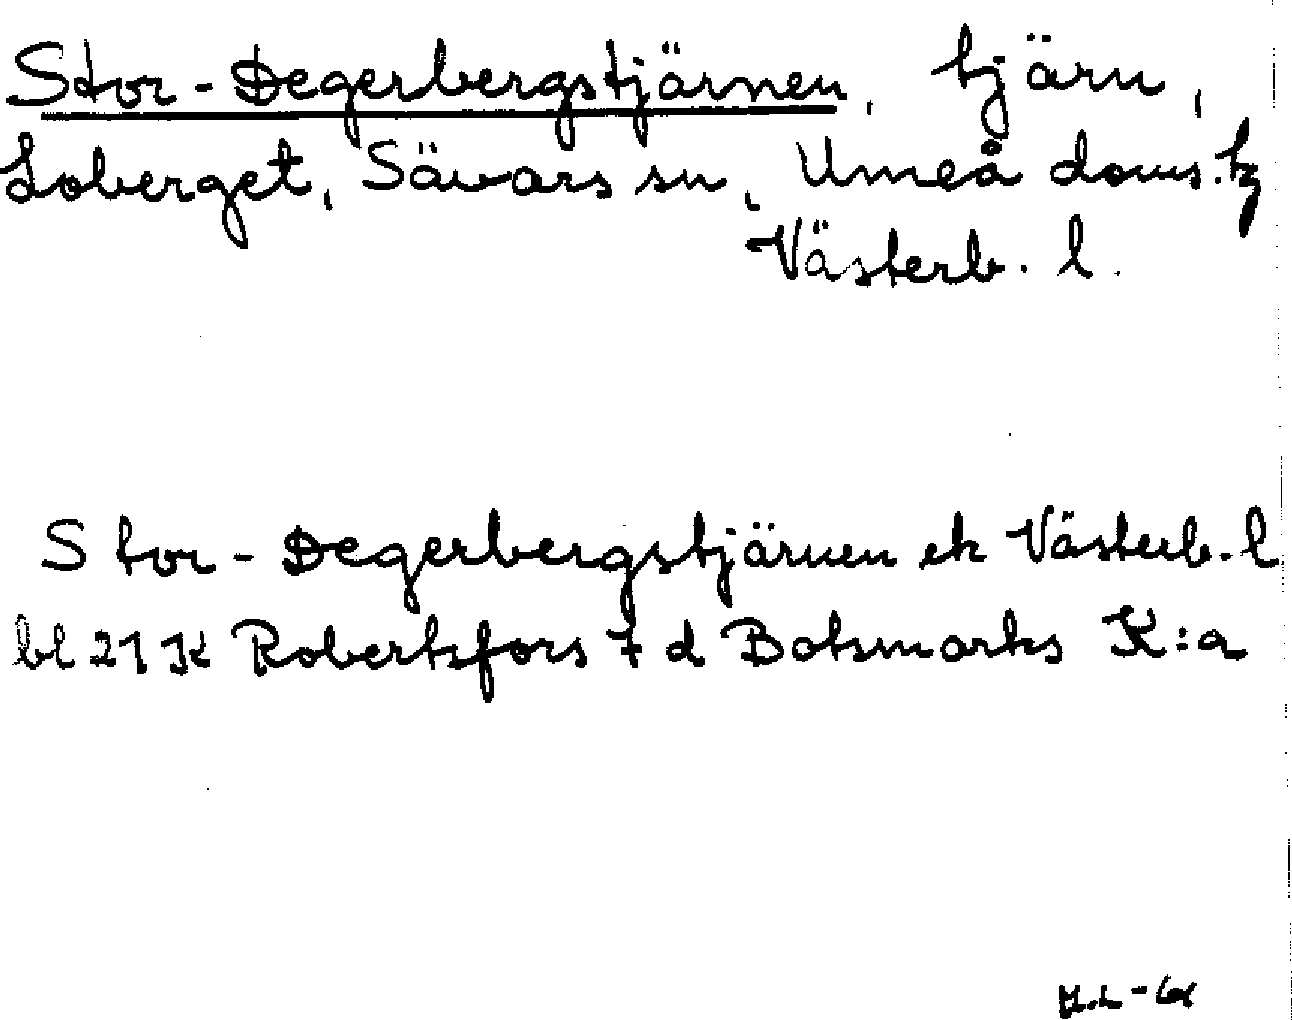 Stor-Degerbergstjärnen, tjärn,
Loberget, Sävars sn, Umeå doms.
Västerb. l.
Stor-Degerbergstjärnen ek Västerb. l
bl 21 K Robertsfors 7 d Botsmarks K:a